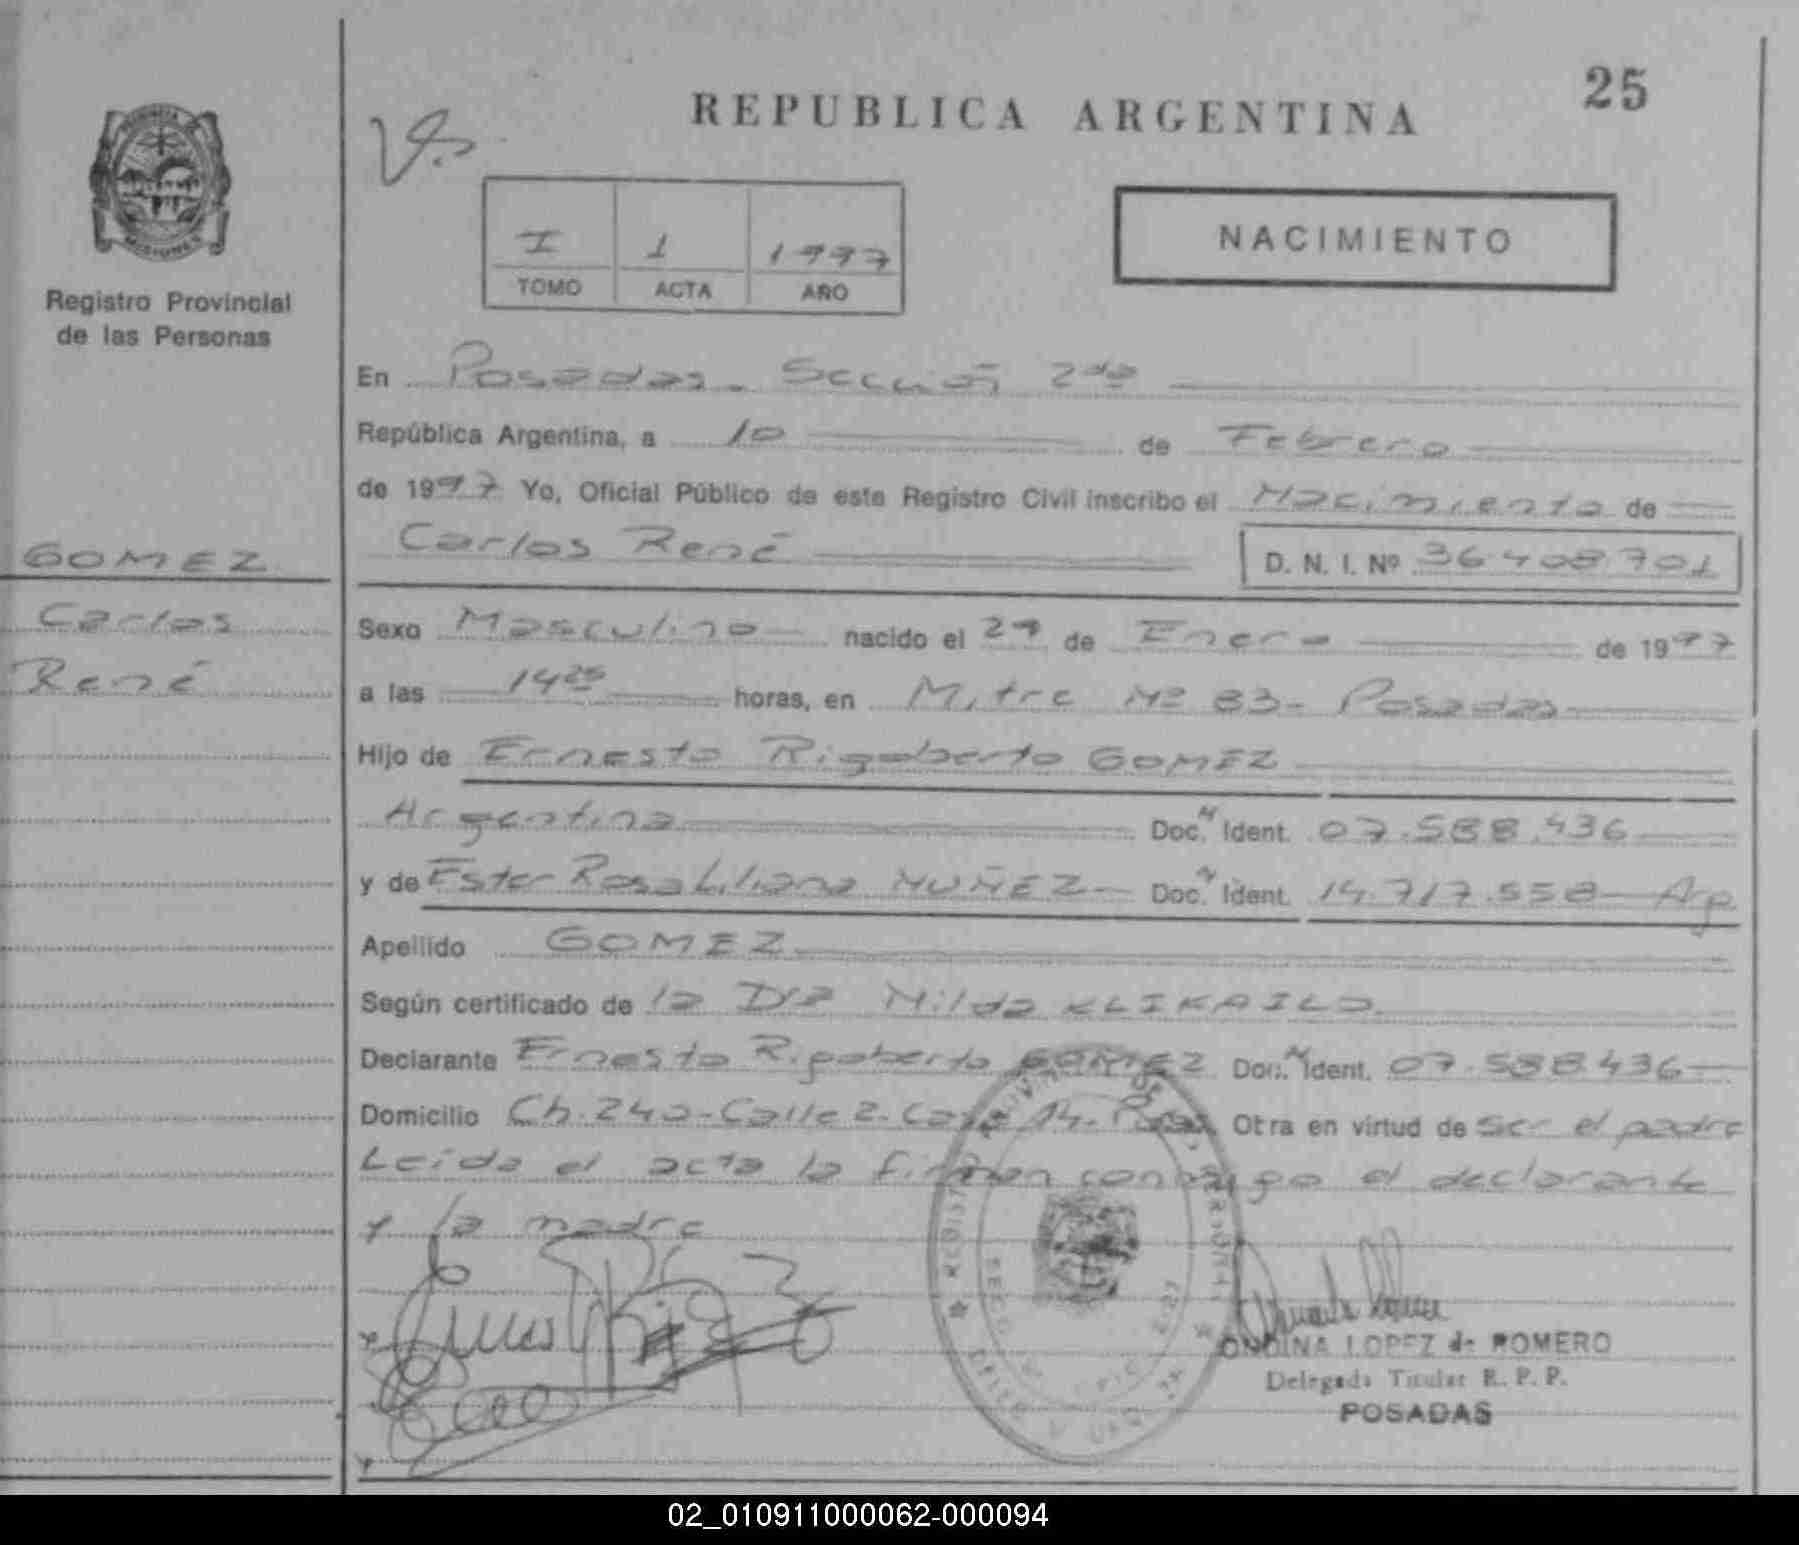 25
REPUBLICA ARGENTINA
NACIMIENTO
I 1 1997
TOMO ACTA AÑO
MISIONES
Registro Provincial
de las Personas
GOMEZ
Carlos
René
En Posadas. Sección 2da
República Argentina, a 10 de Febrero
de 1997 Yo, Oficial Público de este Registro Civil inscribo el Nacimiento de
Carlos René D. N. I. Nº 36.408.701
Sexo Masculino nacido el 29 de Enero de 1997
a las 14 25 horas, en Mitre Nº 83- Posadas
Hijo de Ernesto Rigoberto GOMEZ
Argentina Doc. N Ident. 07.588.436
y de Ester Rosa Liliana NUÑEZ- Doc. N Ident. 14.717.558- Arg
Apellido GOMEZ
Según certificado de la Dra Nilda KLIKAILO
Declarante Ernesto Rigoberto GOMEZ Doc. N Ident. 07.588.436-
Domicilio Ch. 240-Calle 2-Casa 14-Pdas Otra en virtud de ser el padre
Leida el acta la firman conmigo el declarante
y la madre
ONDINA LOPEZ de ROMERO
Delegada Titular R. P. P.
POSADAS
02_010911000062-000094